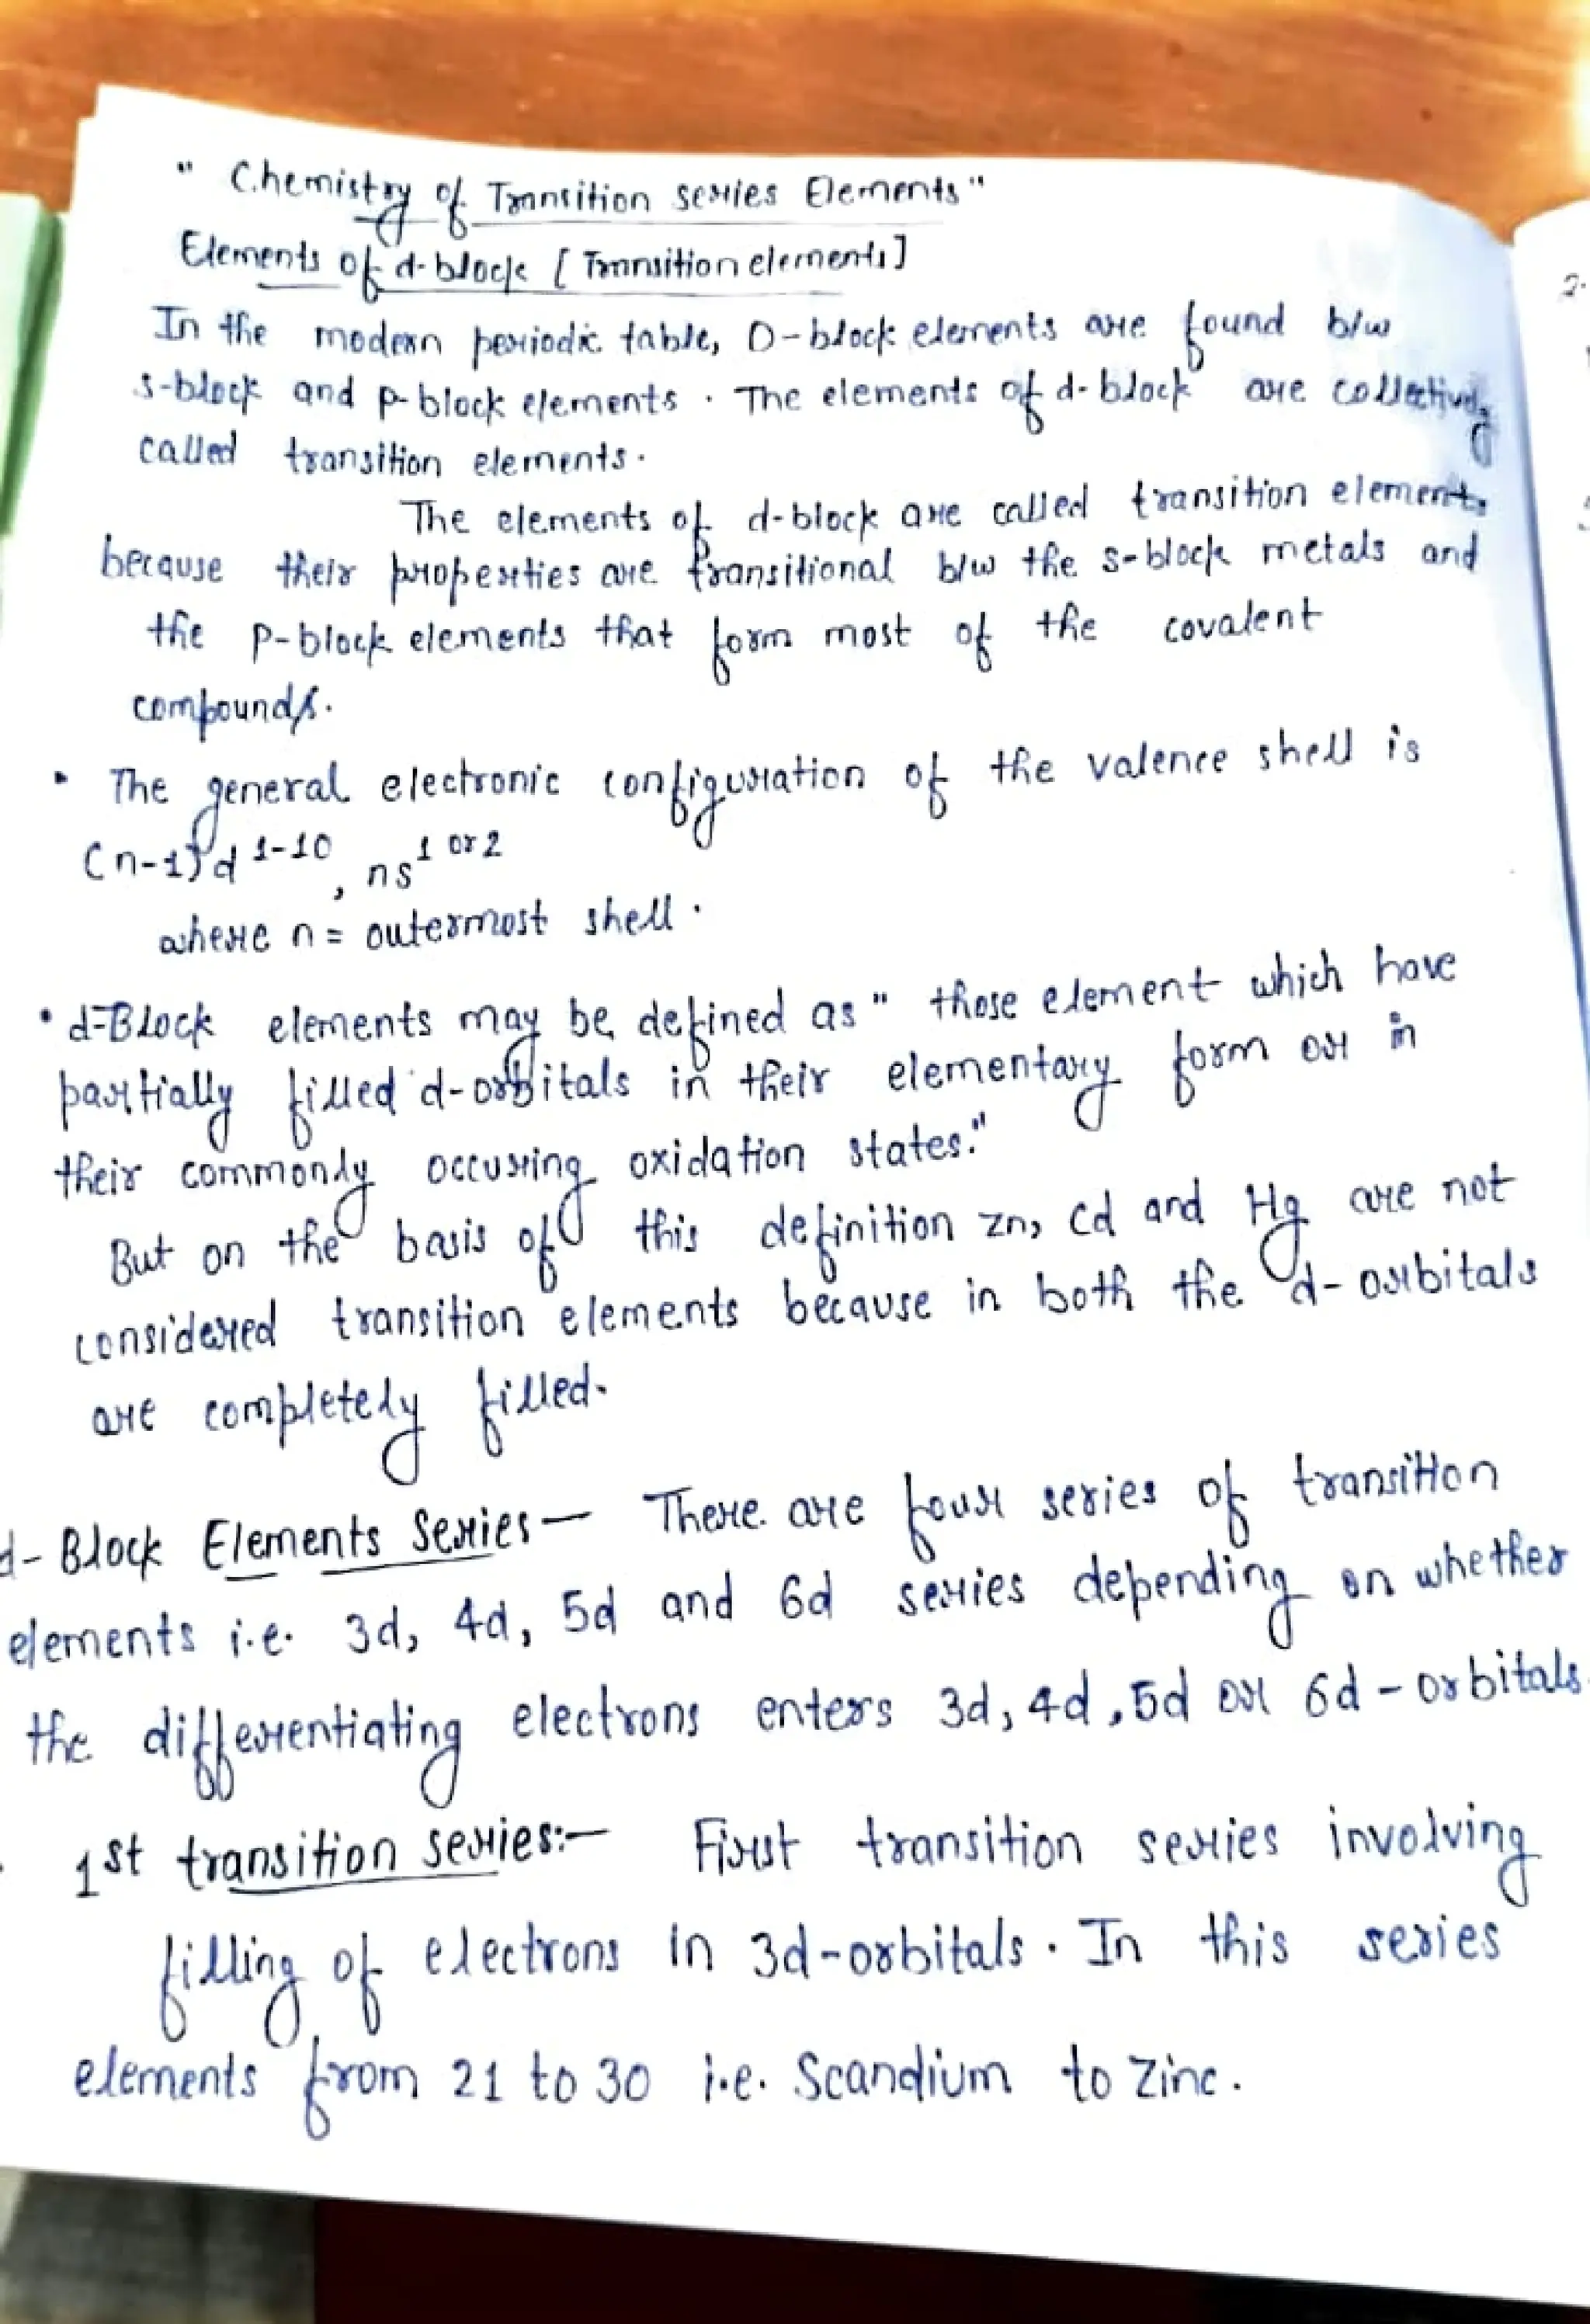 " Chemistry of Transition series Elements"
Elements of d-block [ Transition elements]
In the modern periodic table, D-block elements are found b/w
s-block and p-block elements. The elements of d-block are collectively
called transition elements.
The elements of d-block are called transition elements
because their properties are transitional b/w the s-block metals and
the p-block elements that form most of the covalent
compounds.
• The general electronic configuration of the valence shell is
(n-1)d 1-10, ns 1 or 2
where n = outermost shell.
• d-Block elements may be defined as " those element which have
partially filled d-orbitals in their elementary form or in
their commonly occuring oxidation states."
But on the basis of this definition zn, Cd and Hg are not
considered transition elements because in both the d-orbitals
are completely filled.
d-Block Elements Series— There are four series of transition
elements i.e. 3d, 4d, 5d and 6d series depending on whether
the differentiating electrons enters 3d, 4d, 5d or 6d-orbitals.
1st transition series:— First transition series involving
filling of electrons in 3d-orbitals. In this series
elements from 21 to 30 i.e. Scandium to Zinc.
2.